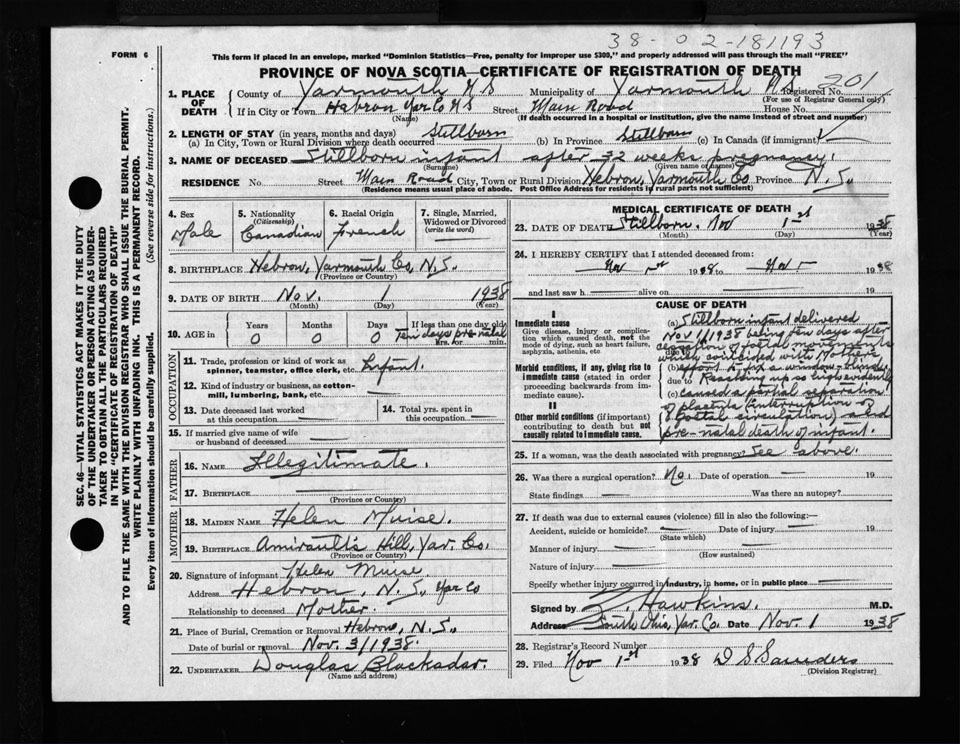 38-02-181193
FORM 6
This form if placed in an envelope, marked "Dominion Statistics—Free, penalty for improper use $300," and properly addressed will pass through the mail "FREE"
PROVINCE OF NOVA SCOTIA—CERTIFICATE OF REGISTRATION OF DEATH
1. PLACE OF DEATH County of Yarmouth N.S Municipality of Yarmouth N.S Registered No. 201
(For use of Registrar General only)
If in City or Town Hebron Yar Co N S Street Main Road House No.
(Name) (If death occurred in a hospital or institution, give the name instead of street and number)
2. LENGTH OF STAY (in years, months and days)
(a) In City, Town or Rural Division where death occurred Stillborn (b) In Province Stillborn (c) In Canada (if immigrant)
3. NAME OF DECEASED Stillborn infant after 32 weeks pregnancy.
(Surname) (Given name or names)
RESIDENCE No. Street Main Road City, Town or Rural Division Hebron, Yarmouth Co Province N.S.
(Residence means usual place of abode. Post Office Address for residents in rural parts not sufficient)
4. Sex Male
5. Nationality (Citizenship) Canadian
6. Racial Origin French
7. Single, Married, Widowed or Divorced (write the word) —
8. BIRTHPLACE Hebron, Yarmouth Co, N.S.
(Province or Country)
9. DATE OF BIRTH Nov. 1 1938
(Month) (Day) (Year)
10. AGE in Years 0 Months 0 Days 0 If less than one day old Ten days pre-natal hrs. or min.
OCCUPATION
11. Trade, profession or kind of work as spinner, teamster, office clerk, etc. Infant.
12. Kind of industry or business, as cotton-mill, lumbering, bank, etc. —
13. Date deceased last worked at this occupation —
14. Total yrs. spent in this occupation —
15. If married give name of wife or husband of deceased —
FATHER
16. NAME Illegitimate.
17. BIRTHPLACE —
(Province or Country)
MOTHER
18. MAIDEN NAME Helen Muise.
19. BIRTHPLACE Amirault's Hill, Yar. Co.
(Province or Country)
20. Signature of informant Helen Muise
Address Hebron, N.S., Yar Co
Relationship to deceased Mother.
21. Place of Burial, Cremation or Removal Hebron, N.S.
Date of burial or removal Nov. 3/1938.
22. UNDERTAKER Douglas Blackadar.
(Name and address)
MEDICAL CERTIFICATE OF DEATH
23. DATE OF DEATH Stillborn. Nov 1st 1938
(Month) (Day) (Year)
24. I HEREBY CERTIFY that I attended deceased from:
Nov 1st 1938 to Nov 1 1938
and last saw h — alive on — 19
CAUSE OF DEATH
I
Immediate cause
Give disease, injury or complication which caused death, not the mode of dying, such as heart failure, asphyxia, asthenia, etc
Morbid conditions, if any, giving rise to immediate cause (stated in order proceeding backwards from immediate cause).
II
Other morbid conditions (if important) contributing to death but not causally related to immediate cause.
(a) Stillborn infant delivered
Nov 1/1938 being few days after
cessation of foetal movements
due to which coincided with Mother's
(b) effort to fix a window-blind.
due to Reaching up so high evidently
(c) caused a partial separation
of placenta (interruption of
foetal circulation) and
pre-natal death of infant.
25. If a woman, was the death associated with pregnancy? See above.
26. Was there a surgical operation? No. Date of operation — 19
State findings — Was there an autopsy?
27. If death was due to external causes (violence) fill in also the following:—
Accident, suicide or homicide? — Date of injury — 19
(State which)
Manner of injury —
(How sustained)
Nature of injury —
Specify whether injury occurred in industry, in home, or in public place —
Signed by Z. Hawkins. M.D.
Address South Ohio, Yar. Co. Date Nov. 1 1938
28. Registrar's Record Number
29. Filed Nov 1st 1938 D S Saunders
(Division Registrar)
SEC. 46—VITAL STATISTICS ACT MAKES IT THE DUTY
OF THE UNDERTAKER OR PERSON ACTING AS UNDER-
TAKER TO OBTAIN ALL THE PARTICULARS REQUIRED
IN THE "CERTIFICATE OF REGISTRATION OF DEATH"
AND TO FILE THE SAME WITH THE DIVISION REGISTRAR WHO SHALL ISSUE THE BURIAL PERMIT.
WRITE PLAINLY WITH UNFADING INK. THIS IS A PERMANENT RECORD.
Every item of information should be carefully supplied. (See reverse side for instructions.)